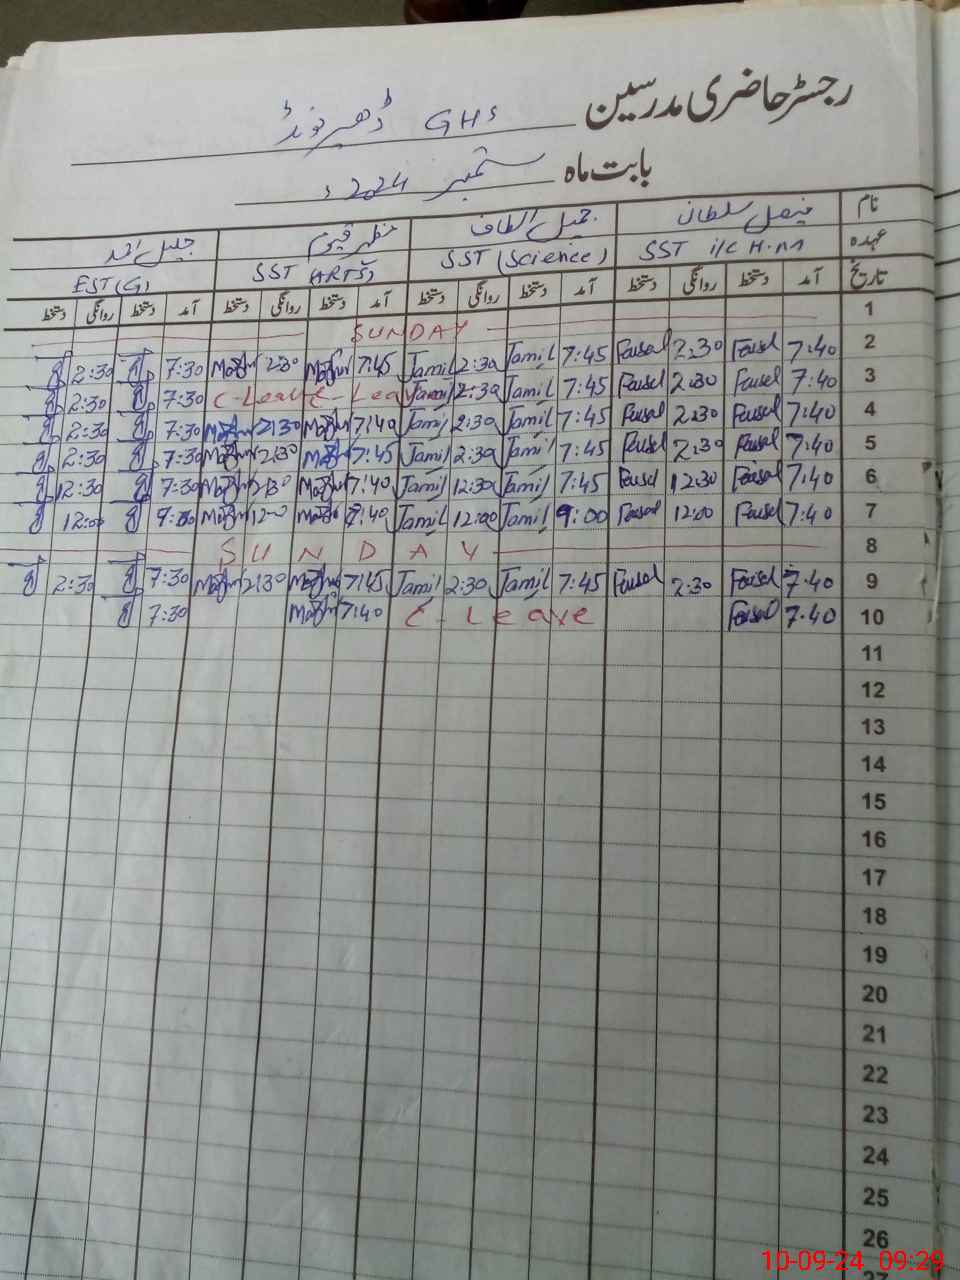 رجسٹر حاضری مدرسین GHS ڈھیرنونڈ
بابت ماہ ستمبر 2024ء
نام فیصل سلطان جمیل الطاف مظہر قیوم جلیل احمد
عہدہ SST i/c H.M SST (Science) SST ARTS EST(G)
تاریخ آمد دستخط روانگی دستخط آمد دستخط روانگی دستخط آمد دستخط روانگی دستخط آمد دستخط روانگی دستخط
1 SUNDAY
2 7:40 Faisal 2:30 Faisal 7:45 Jamil 2:30 Jamil 7:45 Mazhar 2:30 Mazhar 7:30 2:30
3 7:40 Faisal 2:30 Faisal 7:45 Jamil 2:30 Jamil C-Leave C-Leave 7:30 2:30
4 7:40 Faisal 2:30 Faisal 7:45 Jamil 2:30 Jamil 7:40 Mazhar 2:30 Mazhar 7:30 2:30
5 7:40 Faisal 2:30 Faisal 7:45 Jamil 2:30 Jamil 7:45 Mazhar 2:30 Mazhar 7:30 2:30
6 7:40 Faisal 12:30 Faisal 7:45 Jamil 12:30 Jamil 7:40 Mazhar 12:30 Mazhar 7:30 12:30
7 7:40 Faisal 12:00 Faisal 9:00 Jamil 12:00 Jamil Mazhar Mazhar 12:00
8 SUNDAY
9 7:40 Faisal 2:30 Faisal 7:45 Jamil 2:30 Jamil 7:45 Mazhar 2:30 Mazhar 7:30 2:30
10 7:40 Faisal C-Leave 7:40 Mazhar 7:30
11
12
13
14
15
16
17
18
19
20
21
22
23
24
25
26
27
10-09-24 09:29